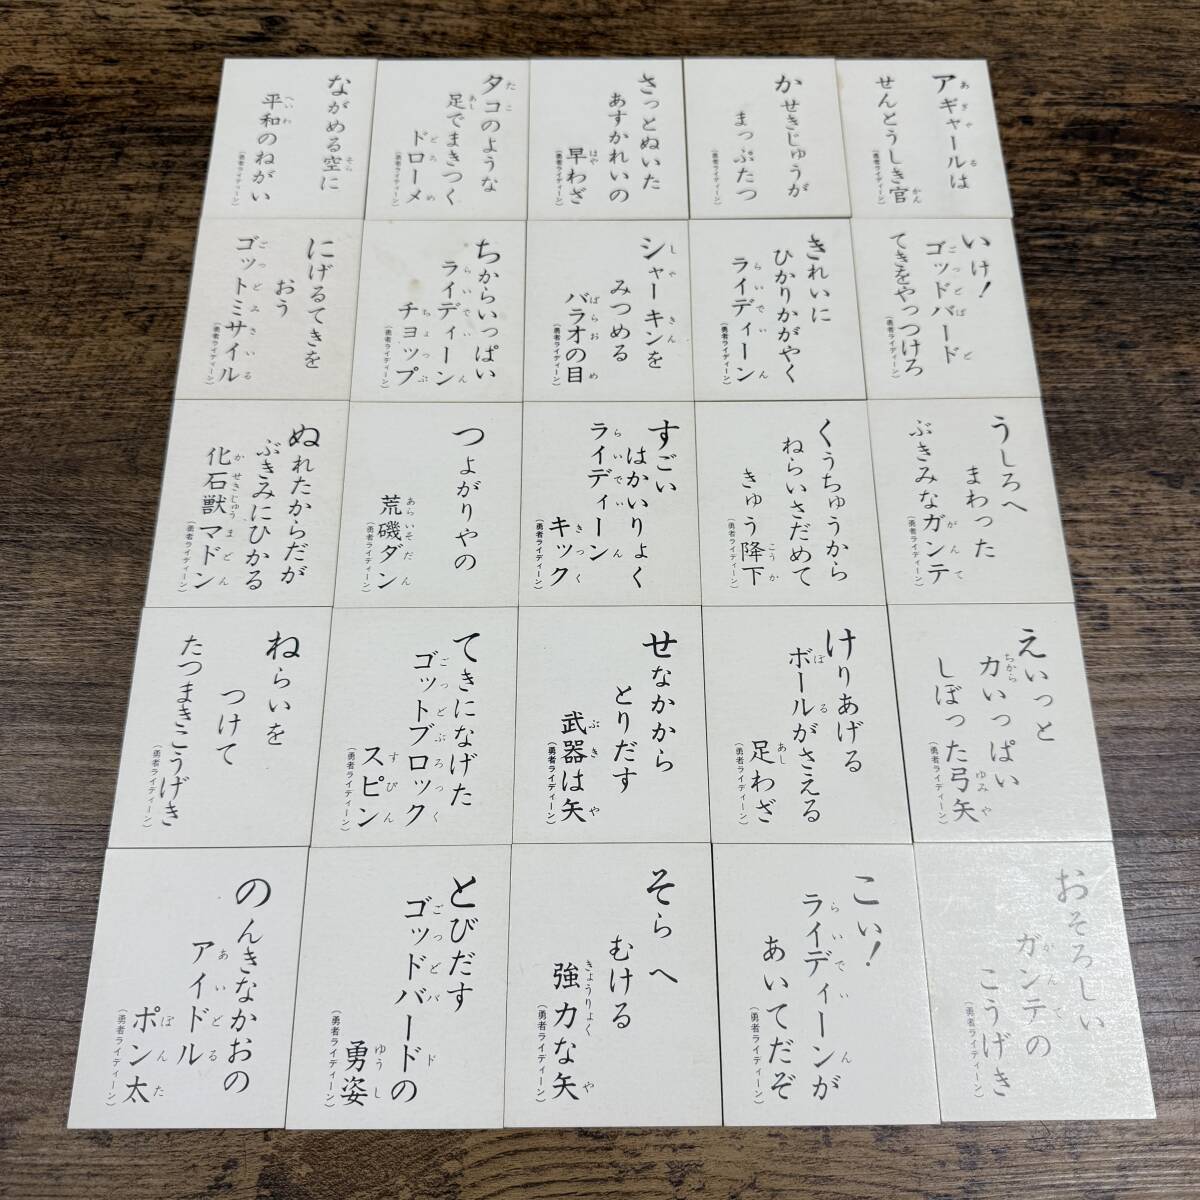 アギャールは
あぎゃ る
せんとうしき官
かん
(勇者ライディーン)
いけ!
ゴッドバード
ごっどば ど
てきをやっつけろ
(勇者ライディーン)
うしろへ
まわった
ぶきみなガンテ
がんて
(勇者ライディーン)
えいっと
力いっぱい
ちから
しぼった弓矢
ゆみや
(勇者ライディーン)
おそろしい
ガンテの
がんて
こうげき
(勇者ライディーン)
かせきじゅうが
まっぷたつ
(勇者ライディーン)
きれいに
ひかりかがやく
ライディーン
らいでぃ ん
(勇者ライディーン)
くうちゅうから
ねらいさだめて
きゅう降下
こうか
(勇者ライディーン)
けりあげる
ボールがさえる
ぼ る
足わざ
あし
(勇者ライディーン)
こい!
ライディーンが
らいでぃ ん
あいてだぞ
(勇者ライディーン)
さっとぬいた
あすかれいの
早わざ
はや
(勇者ライディーン)
シャーキンを
しゃ きん
みつめる
バラオの目
ばらお め
(勇者ライディーン)
すごい
はかいりょく
ライディーン
らいでぃ ん
キック
きっく
(勇者ライディーン)
せなかから
とりだす
武器は矢
ぶき や
(勇者ライディーン)
そらへ
むける
強力な矢
きょうりょく や
(勇者ライディーン)
タコのような
たこ
足でまきつく
あし
ドローメ
どろ め
(勇者ライディーン)
ちからいっぱい
ライディーン
らいでぃ ん
チョップ
ちょっぷ
(勇者ライディーン)
つよがりやの
荒磯ダン
あらいそだん
(勇者ライディーン)
てきになげた
ゴットブロック
ごっどぶろっく
スピン
すぴん
(勇者ライディーン)
とびだす
ゴッドバードの
ごっどバ ド
勇姿
ゆうし
(勇者ライディーン)
ながめる空に
そら
平和のねがい
へいわ
(勇者ライディーン)
にげるてきを
おう
ゴットミサイル
ごっどみさいる
(勇者ライディーン)
ぬれたからだが
ぶきみにひかる
化石獣マドン
かせきじゅうまどん
(勇者ライディーン)
ねらいを
つけて
たつまきこうげき
(勇者ライディーン)
のんきなかおの
アイドル
あいどる
ポン太
ぽんた
(勇者ライディーン)